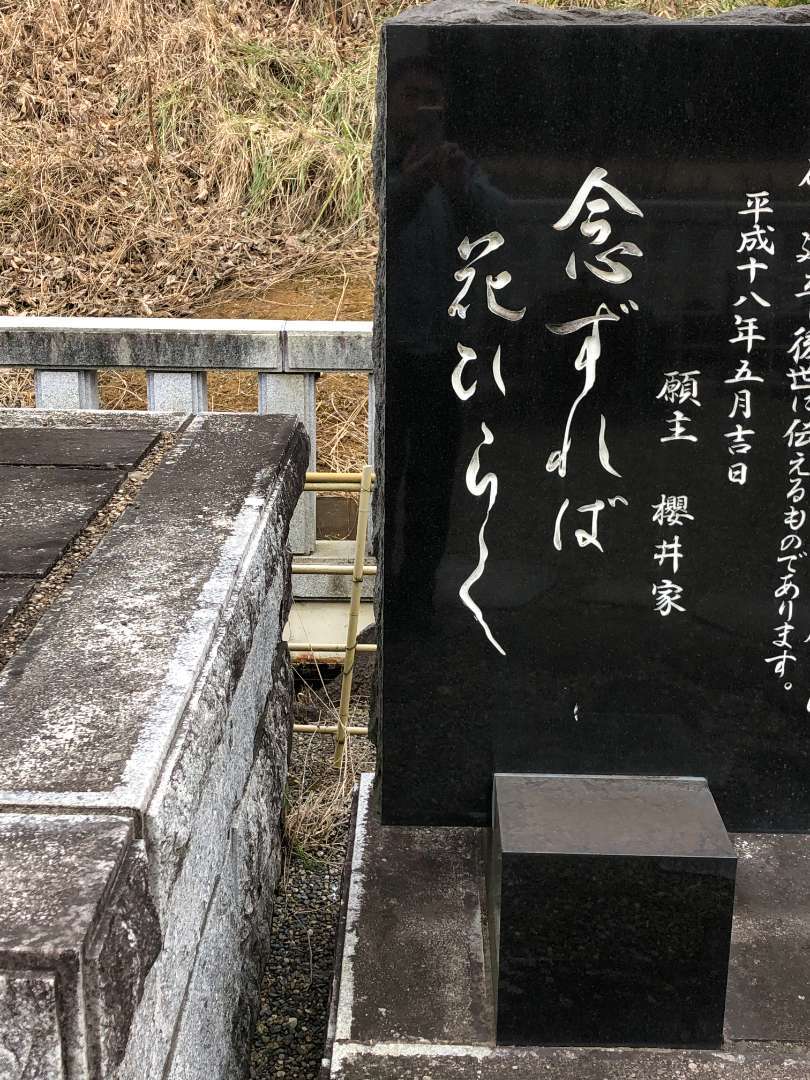 後世に伝えるものであります。
平成十八年五月吉日
願主 櫻井家
念ずれば
花ひらく